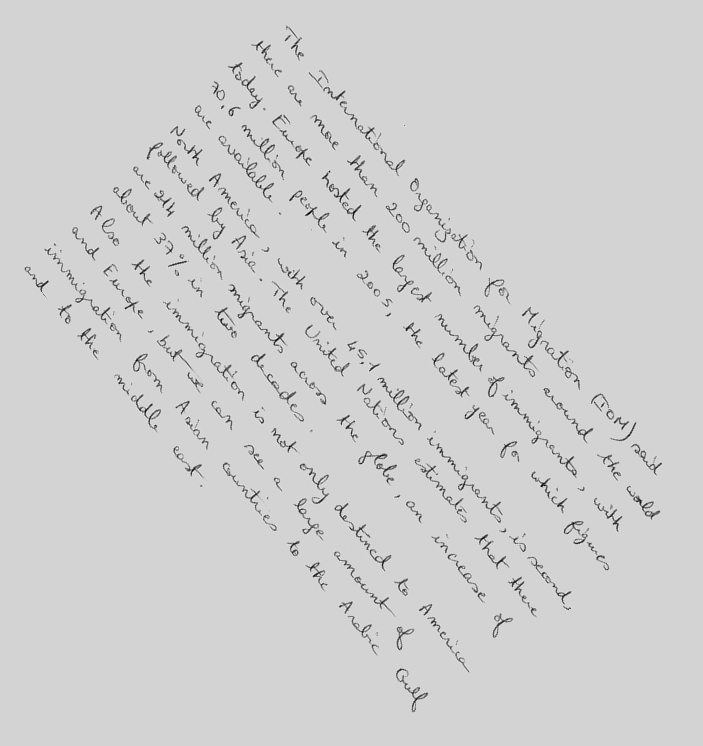 The International Organisation for Migration (IOM) said
there are more than 200 million migrants around the world
today. Europe hosted the largest number of immigrants, with
70,6 million people in 2005, the latest year for which figures
are available.
North America, with over 45,1 million immigrants, is second,
followed by Asia. The United Nations estimates that there
are 214 million migrants across the globe, an increase of
about 37% in two decades.
Also the immigration is not only destined to America
and Europe, but we can see a large amount of
immigration from Asian countries to the Arabic Gulf
and to the middle east.